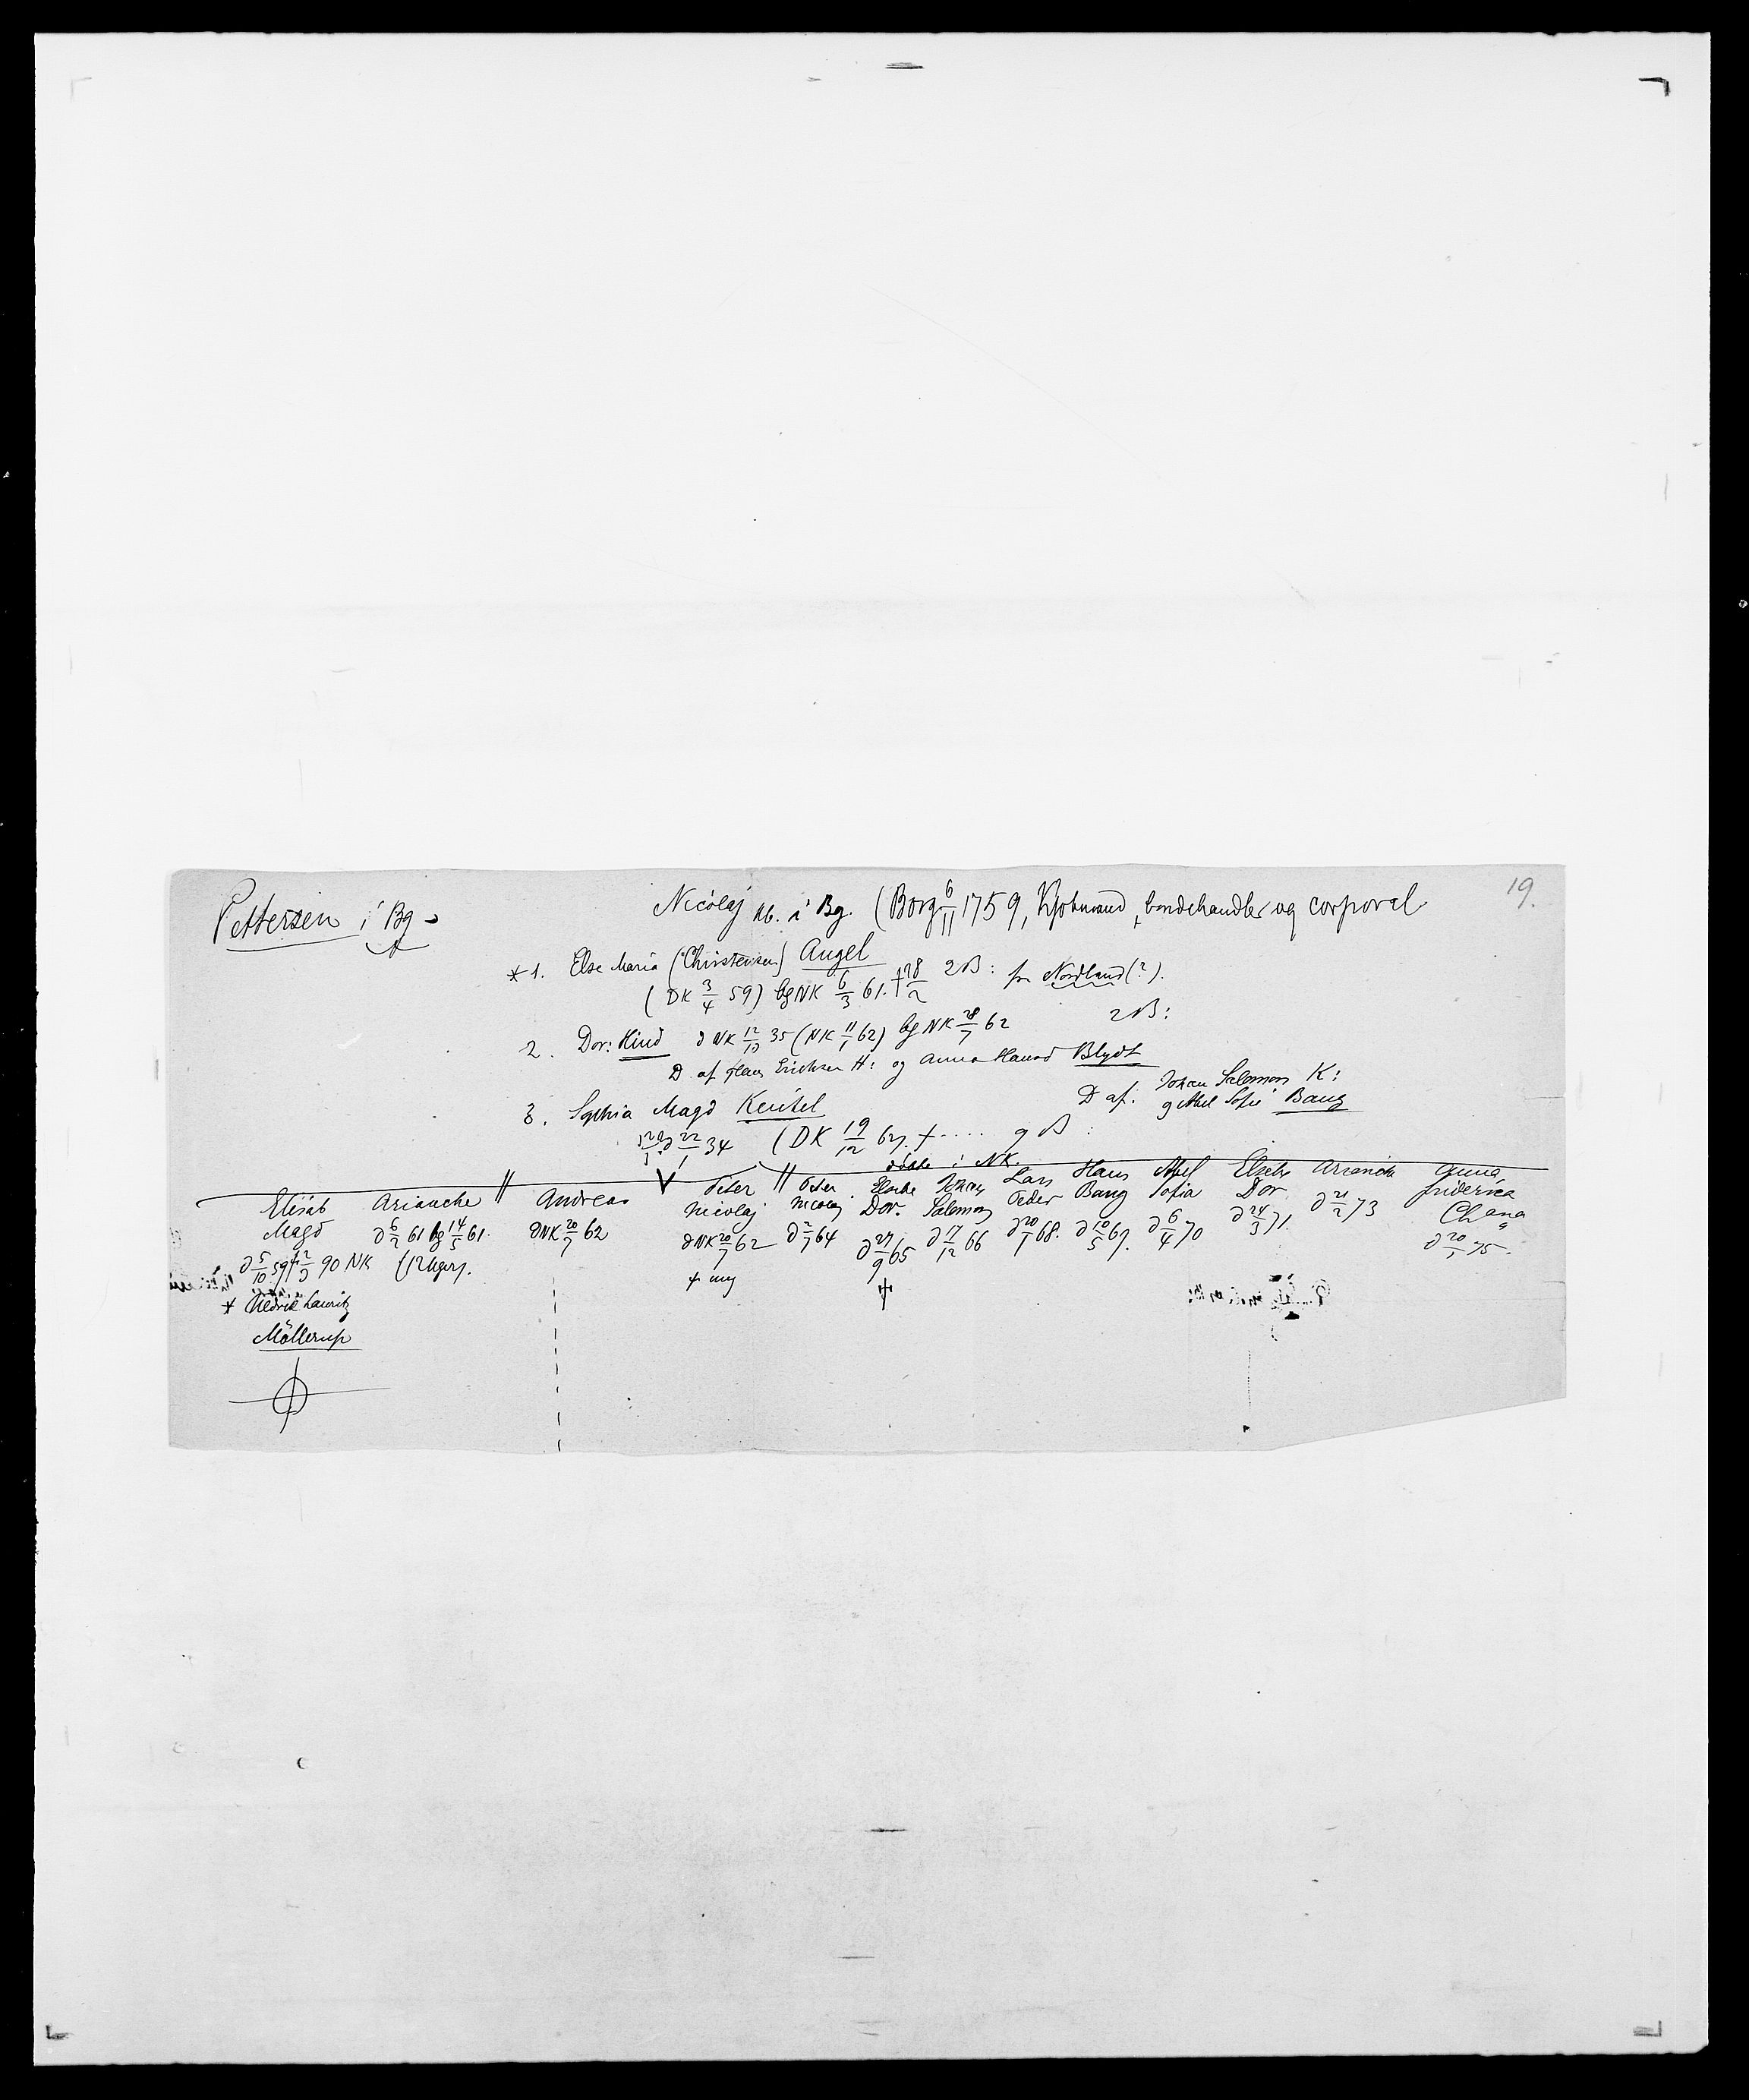 19.
Pettersen i Bg
Nicolaj kb. i Bg. (Borg 6/11 1759, Kjøbmand, bondehandler og corporal
* 1. Else Maria (Christensen) Angel
(DK 3/4 59) bg NK 6/3 61. † 28/2 2 B: fra Nordland (?).
2. Dor: Hind d NK 12/10 35 (NK 11/1 62) bg NK 28/7 62 2 B:
D. af Hans Erichsen H: og Anna Hansd Blydt
3. Sophia Magd Keutel D af. Johan Salomon K:
d 22/1 34 (DK 19/12 62). † .... 9 B: og Abel Sofie Bang
døbte i NK.
Elisab Magd d 5/10 59 † 90 NK
* Didrik Lauritz
Möllerup
Arianche d 6/2 61 bg 14/5 61. (12 uger).
Andreas d NK 20/7 62
Peter Nicolaj d NK 20/7 62 † ung
Peter Nicolaj d 2/7 64
Elsebe Dor. d 27/9 65 †
Johan Salomon d 17/12 66
Lars Peder d 20/1 68.
Hans Bang d 10/5 69.
Abel Sofia d 6/4 70
Elsebe Dor d 24/3 71.
Arianche d 21/2 73
Anna Friderica Chana d 20/1 75.